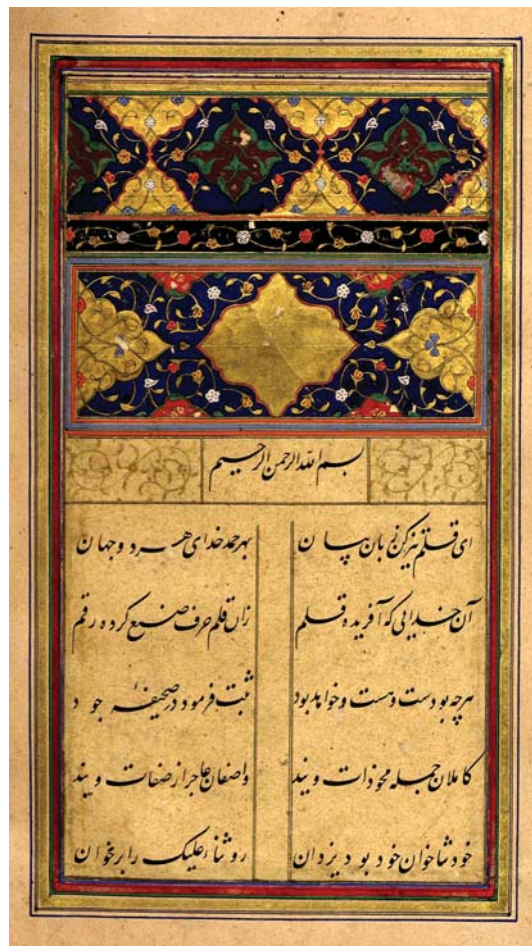 بسم الله الرحمن الرحیم
ای قلم تیز کن زبان بیان بهر حمد خدای هر دو جهان
آن خدایی که آفریده قلم زان قلم حرف صنع کرده رقم
هرچه بودست و هست و خواهد بود ثبت فرمود در صحیفهٔ جود
کاملان جمله محو ذات ویند واصفان عاجز از صفات ویند
خود ثناخوان خود بود یزدان رو ثناء علیک را برخوان